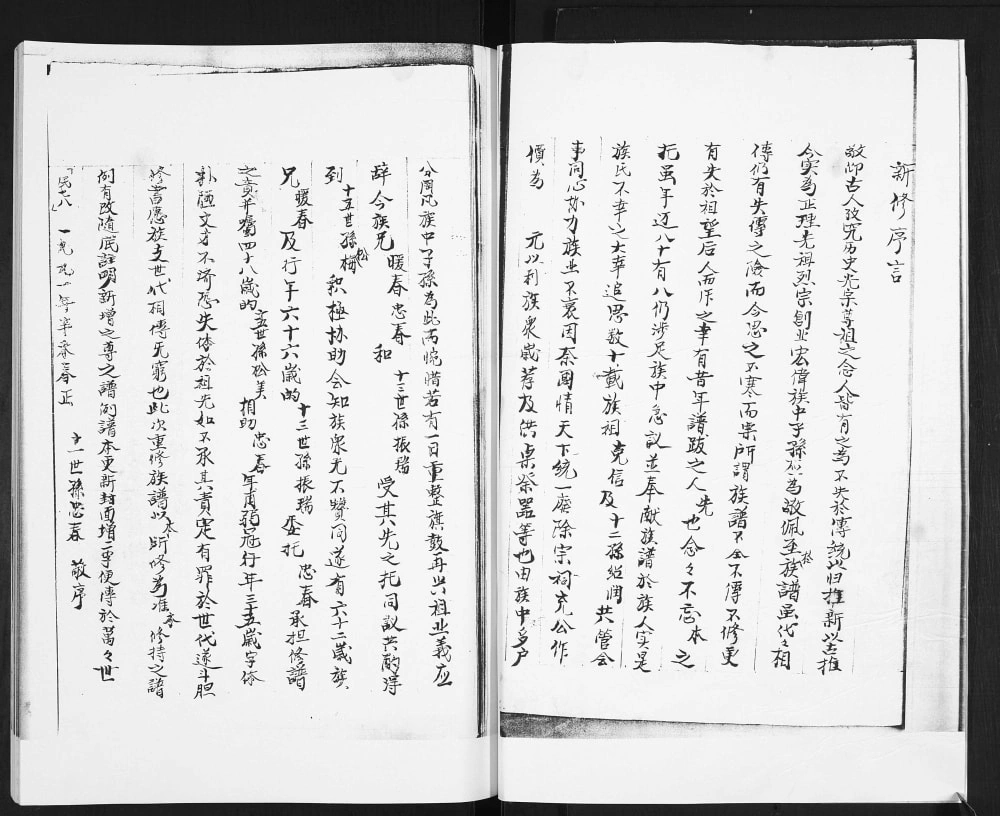 新修序言
敬仰古人攷究历史光宗尊祖之念人皆有之為不失於傳說以归推新以古推
今实為正理先祖烈宗創业宏偉族中子孫為敬佩至於族譜虽代々相
傳仍有失傳之险而今思之不寒而栗所謂族譜不全不傳不修更
有失於祖望后人而作之幸有昔年譜跋之人先也念々不忘本之
托虽年迈八十有八仍涉足族中急议並奉献族譜於族人实是
族氏不幸之大幸追思数十載族祖克信及十二孫紹润共管会
事同心协力族业不衰因奈國情天下统一廢除宗祠充公作
價為元以利族衆歲荐及供桌祭器等也由族中多户
分用凡族中子孫為此而惋惜若有一日重整旗鼓再兴祖业義应
辞今族兄暖春忠春和十三世孫振瑞受其先之托同议共酌得
到十五世孫梅松积極协助令知族衆无不贊同遂有六十二歲族
兄暖春及行年六十六歲的十三世孫振瑞委托忠春承担修譜
之責并囑四十八歲的十五世孫松美相助忠春年有弱冠行年三十五歲字体
文才不济恐失体於祖先如不承其責定有罪於世代遂斗胆
修書應族支世代相傳无窮也此次重修族譜以本所修為准本修持之譜
例有改随底註明新增之尊之譜例譜本更新封面增二事便傳於萬々世
「民七八」一九九一年辛未春正 十一世孫忠春 敬序